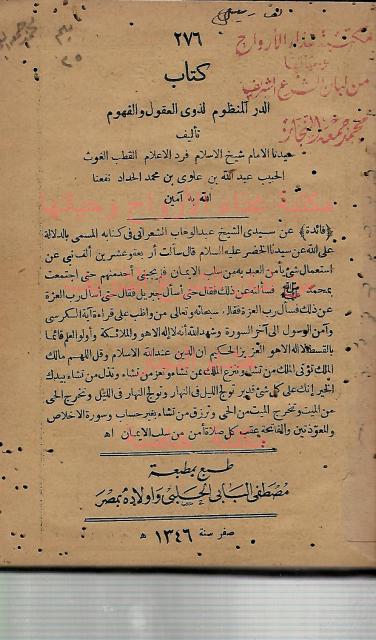 ٢٧٦
كتاب
الدر المنظوم لذوى العقول والفهوم
تأليف
سيدنا الامام شيخ الاسلام فرد الاعلام القطب الغوث
الحبيب عبد الله بن علوى بن محمد الحداد نفعنا
الله به آمين
مكتبة غذاء الأرواح وحياتها
﴿فائدة﴾ عن سيدى الشيخ عبد الوهاب الشعرانى فى كتابه المسمى بالدلالة
على الله عن سيدنا الخضر عليه السلام قال سألت أربعة وعشرين ألف نبى عن
استعمال شئ يأمن العبد به من سلب الايمان فلم يجبنى أحد منهم حتى اجتمعت
بمحمد ﷺ فسألته عن ذلك فقال حتى أسأل جبريل فقال حتى أسأل رب العزة
عن ذلك فسأل رب العزة فقال سبحانه وتعالى من واظب على قراءة آية الكرسى
وآمن الرسول الى آخر السورة وشهد الله أنه لا إله الا هو والملائكة وأولو العلم قائما
بالقسط لا اله الا هو العزيز الحكيم ان الدين عند الله الاسلام وقل اللهم مالك
الملك تؤتى الملك من تشاء وتنزع الملك ممن تشاء وتعز من تشاء وتذل من تشاء بيدك
الخير إنك على كل شئ قدير تولج الليل فى النهار وتولج النهار فى الليل وتخرج الحى
من الميت وتخرج الميت من الحى وترزق من تشاء بغير حساب وسورة الاخلاص
والمعوذتين والفاتحة عقب كل صلاة أمن من سلب الايمان اه
طبع بمطبعة
مصطفى البابى الحلبى وأولاده بمصر
صفر سنة ١٣٤٦ ه
مكتبة غذاء الأرواح
وحياتها
من لبان الشرع الشريف
محمد جمعة النجار